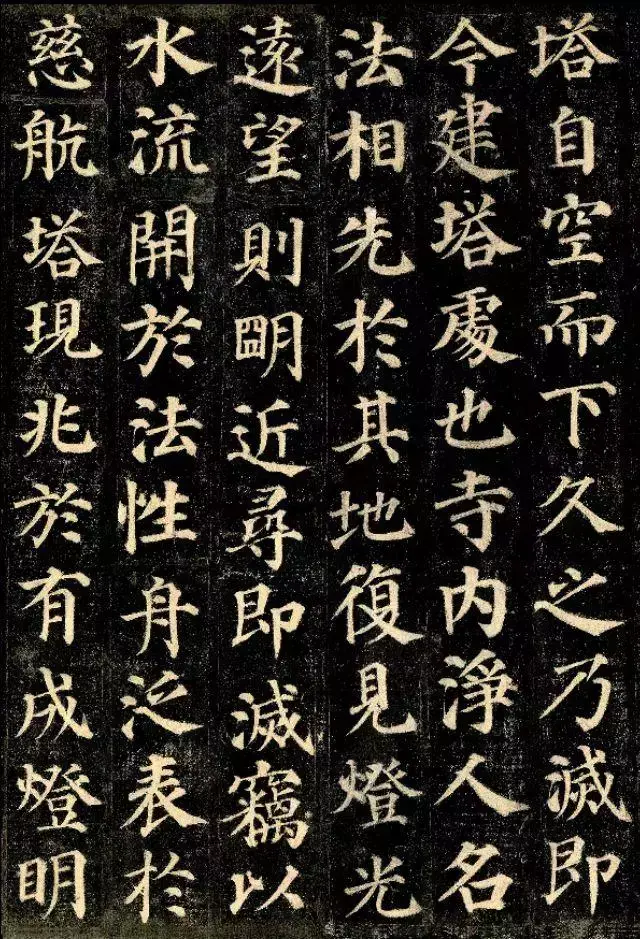 塔自空而下久之乃滅即
今建塔處也寺内淨人名
法相先於其地復見燈光
遠望則朙近尋即滅竊以
水流開於法性舟泛表於
慈航塔現兆於有成燈明